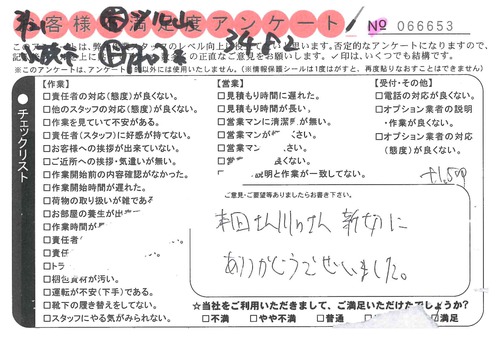 客様満足度アンケート
№ 066653
3482
※このアンケートは、アンケート目的以外には使用いたしません。(※情報保護シールは1度がすと、再度貼りなおすことはできません)
チェックリスト
【作業】
□責任者の対応(態度)が良くない。
□他のスタッフの対応(態度)が良くない。
□作業を見ていて不安がある。
□責任者(スタッフ)に好感が持てない。
□お客様への挨拶が出来ていない。
□ご近所への挨拶・気遣いが無い。
□作業開始前の内容確認がなかった。
□作業開始時間が遅れた。
□荷物の取り扱いが雑であ
□お部屋の養生が出
□作業時間が
□責任者
□責任
□トラ
□梱包資材が汚い。
□運転が不安(下手)である。
□靴下の履き替えをしてない。
□スタッフにやる気がみられない。
【営業】
□見積もり時間に遅れた。
□見積もり時間が長い。
□営業マンに清潔感が無い。
□営業マンが
□営業マン
良くない。
説明と作業が一致してない。
【受付・その他】
□電話の対応が良くない。
□オプション業者の説明
・作業が良くない。
□オプション業者の対応
(態度)が良くない。
+1,500
ご意見・ご要望等ありましたらお書き下さい。
新切に
ありがとうございました。
☆当社をご利用いただきまして、ご満足いただけたでしょうか?
□不満 □やや不満 □普通 満足